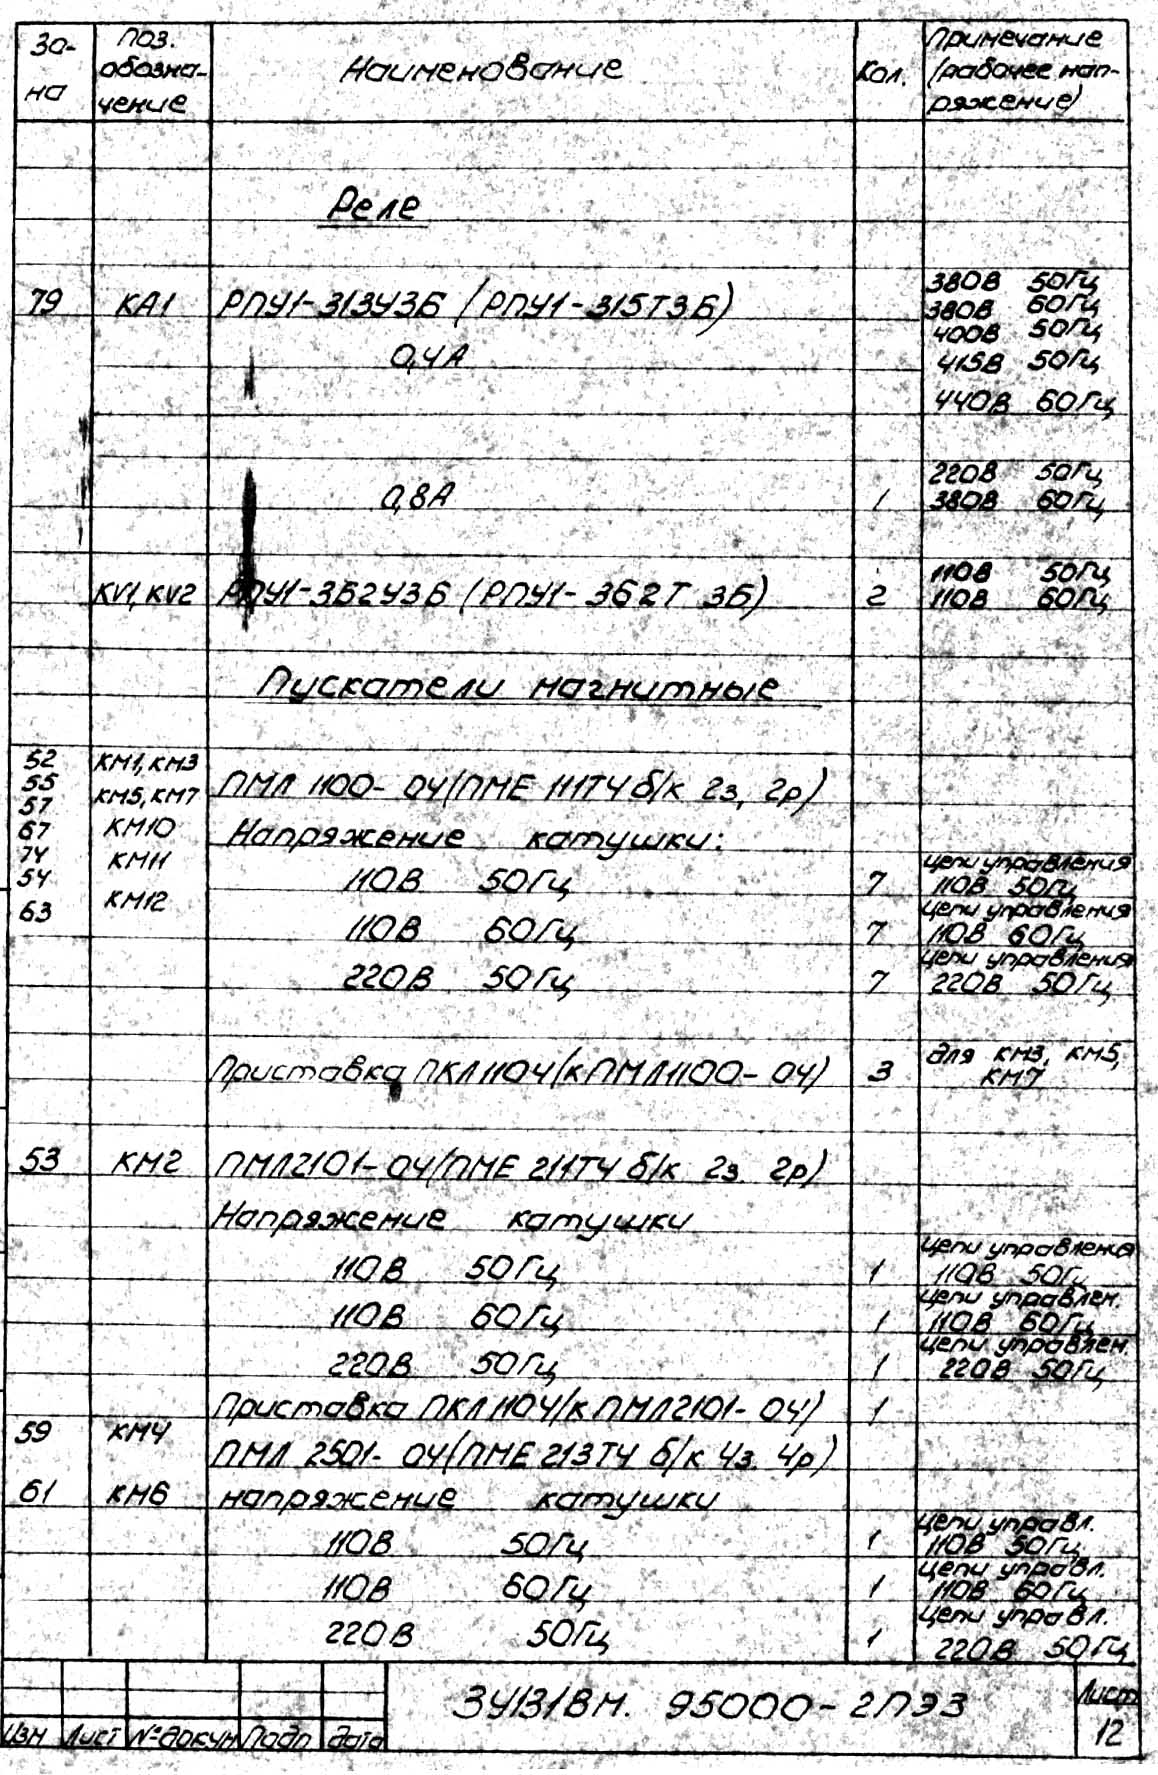 Зо-
на
Поз.
обозна-
чение
Наименование
Кол.
Примечание
(рабочее нап-
ряжение)
Реле
79 КА1 РПУ1-313У3Б (РПУ1-315Т3Б)
0,4А
380В 50Гц
380В 60Гц
400В 50Гц
415В 50Гц
440В 60Гц
0,8А 1
220В 50Гц
380В 60Гц
КV1, КV2 РПУ1-362У3Б (РПУ1-362Т 3Б) 2
110В 50Гц
110В 60Гц
Пускатели магнитные
52 КМ1, КМ3
55 КМ5, КМ7
57
67 КМ10
74 КМ11
54
63 КМ12
ПМЛ 1100-04(ПМЕ 111ТЧ б/к 2з, 2р)
Напряжение катушки:
110В 50Гц 7 Цепи управления
110В 50Гц
110В 60Гц 7 Цепи управления
110В 60Гц
220В 50Гц 7 Цепи управления
220В 50Гц
Приставка ПКЛ1104(к ПМЛ1100-04) 3 для КМ3, КМ5,
КМ7
53 КМ2 ПМЛ2101-04(ПМЕ 211ТЧ б/к 2з. 2р)
Напряжение катушки
110В 50Гц 1 Цепи управления
110В 50Гц
110В 60Гц 1 Цепи управлен.
110В 60Гц
220В 50Гц 1 Цепи управлен.
220В 50Гц
Приставка ПКЛ1104(к ПМЛ2101-04) 1
59 КМ4
ПМЛ 2501-04(ПМЕ 213ТЧ б/к 4з. 4р)
61 КМ6 напряжение катушки
110В 50Гц 1 Цепи управл.
110В 50Гц
110В 60Гц 1 Цепи управл.
110В 60Гц
220В 50Гц 1 Цепи управл.
220В 50Гц
3У131ВМ. 95000-2ПЭ3
Лист
12
Изм Лист № докум Подп Дата